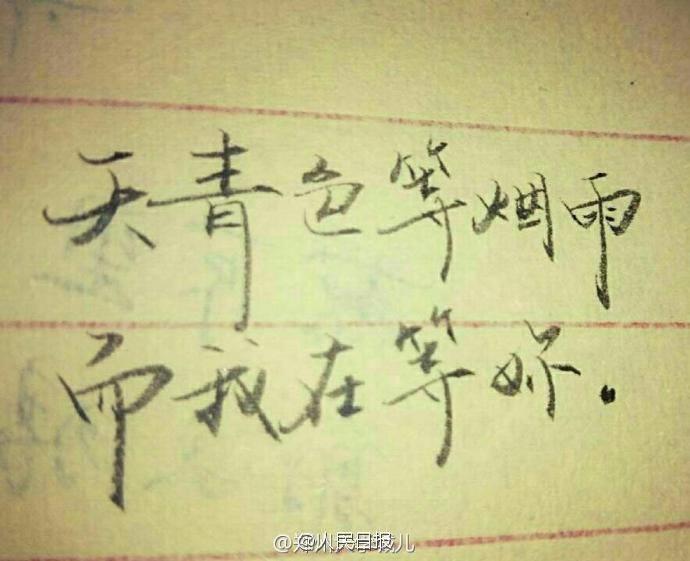 天青色等烟雨
而我在等妳.
@人民日报